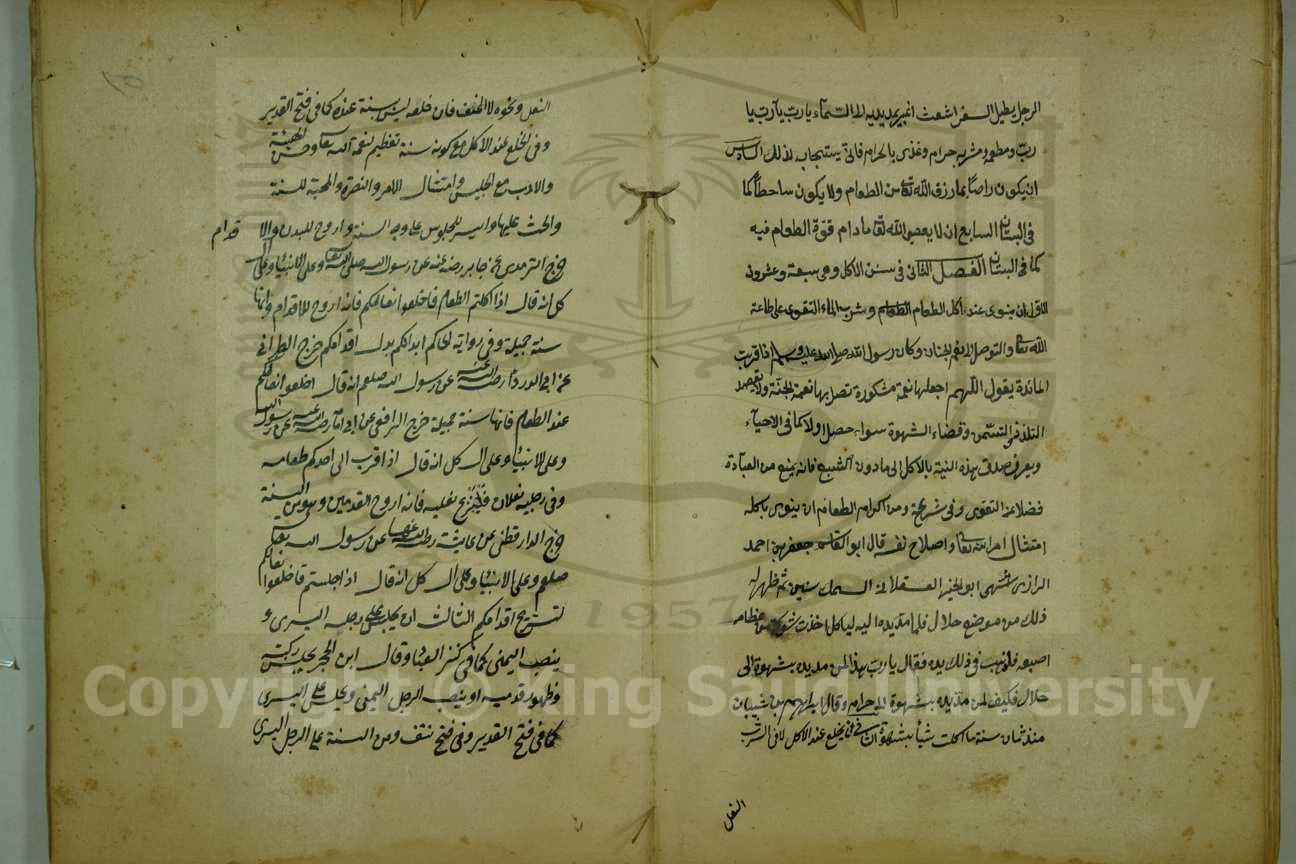 الرجل يطيل السفر اشعث اغبر يمد يديه الى السماء يا رب يا رب يا
رب ومطعمه ومشربه حرام وغذى بالحرام فانى يستجاب لذلك السادس
ان يكون راضيا بما رزق الله تعا من الطعام ولا يكون ساخطا كما
فى البستان السابع ان لا يعصى الله تعا مادام قوة الطعام فيه
كما فى البستان الفصل الثانى فى سنن الاكل وهى سبعة وعشرون
الاول ان ينوى عند اكل الطعام الطعام وشرب الماء التقوى على طاعة
الله تعا والتوصل الى نعيم الجنان وكان رسول الله صلى الله عليه وسلم اذا قربت
المائدة يقول اللهم اجعلها نعمة مشكورة تصل بها نعمة الجنة ولا يقصد
التلذذ والتسمن وقضاء الشهوة سواء حصل اولا كما فى الاحياء
ويعرف صدق بهذه النية بالاكل الى ما دون الشبع فانه يمنع من العبادة
فضلا عن التقوى وفى شرعة ومن اكرام الطعام ان ينوى باكله
امتثال امر الله تعا واصلاح نفسه قال ابو القاسم جعفر بن احمد
الرازى اشتهى ابو الخير العسقلانى السمك سنين ثم ظهر له
ذلك من موضع حلال فلما مد يده اليه لياكل اخذت شوكة من عظامه
اصبعه فذهب فى ذلك يده فقال يا رب هذا لمن مد يده بشهوة الى
حلال فكيف لمن مد يده بشهوة الى حرام وقال ابراهيم بن شيبان
منذ ثمان سنة ما اكلت شيأ بشهوة الثانى يخلع عند الاكل لا فى الشرب
النعل
النعل ونحوه لا الخف فان خلعه ليس بسنة عنده كما فى فتح القدير
وفى الخلع عند الاكل مع كونه سنة تعظيم نعمة الله تعا وحسن الهيئة
والادب مع الجليس وامتثال الامر والنصرة والمحبة للسنة
والحث عليها وايسر للجلوس على وجه السنة واروح للبدن والاقدام
خرج الترمذى عن جابر رضى عنه عن رسول الله صلى الله وعلى الانبياء وعلى آل
كل انه قال اذا اكلتم الطعام فاخلعوا نعالكم فانه اروح للاقدام وانها
سنة جميلة وفى رواية الحاكم ابدانكم بدل اقدامكم خرج الطبرانى
عن ابى الدرداء رضى الله عنه عن رسول الله صلعم انه قال اخلعوا نعالكم
عند الطعام فانها سنة جميلة خرج الرافعى عن ابى امامة رضى الله عنه عن رسول الله
وعلى الانبياء وعلى آل كل انه قال اذا قرب الى احدكم طعامه
وفى رجليه نعلان فلينزع نعليه فانه اروح القدمين وهو من السنة
خرج الدارقطنى عن عائشة رضى الله عنها عن رسول الله
صلعم وعلى الانبياء وعلى آل كل انه قال اذا جلستم فاخلعوا نعالكم
لتستريح اقدامكم الثالث ان يجلس على رجله اليسرى و
ينصب اليمنى كما فى كنز العباد وقال ابن الحجر يجلس ركبتيه
وظهور قدميه او ينصب الرجل اليمنى ويجلس على اليسرى
كما فى فتح القدير وفى فتح ومن السنة على الرجل اليسرى
1957
Copyright © King Saud University